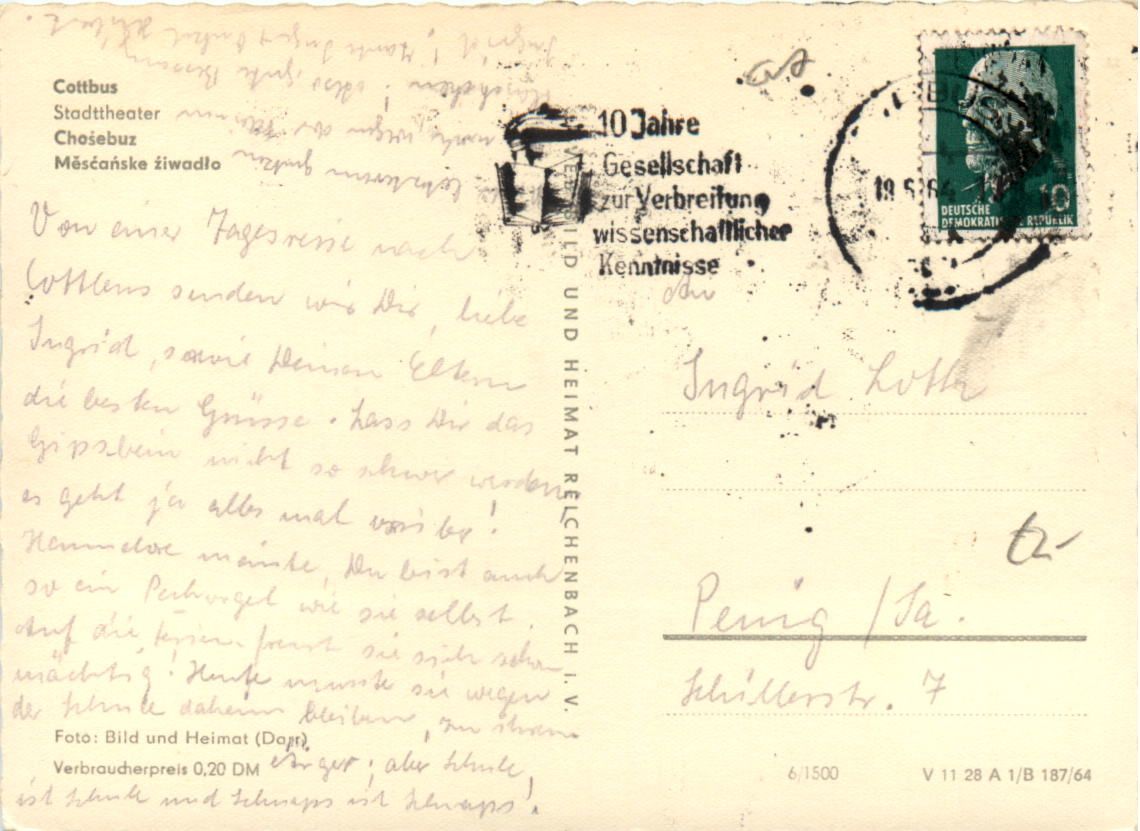 Cottbus
Stadttheater
Chośebuz
Měsćańske źiwadło
Von einer Tagesreise nach
Cottbus senden wir Dir, liebe
Ingrid, sowie Deinen Eltern
die besten Grüsse. Lass Dir das
Gipsbein nicht so schwer werden,
es geht ja alles mal vorüber!
Hannelore meinte, Du bist auch
so ein Pechvogel wie sie selbst.
Auf die Ferien freut sie sich schon
mächtig! Heute musste sie wegen
der Schule daheim bleiben, zu ihrem
Ärger; aber Schule
ist Schule und Schnaps ist Schnaps!
gute Besserung
Ingrid! Tante Inge +
Foto: Bild und Heimat (Darr)
Verbraucherpreis 0,20 DM
VEB BILD UND HEIMAT REICHENBACH I. V.
10 Jahre
Gesellschaft
zur Verbreitung
wissenschaftlicher
Kenntnisse
BUS
19.6.64
10
DEUTSCHE
DEMOKRATISCHE REPUBLIK
An
Ingrid Loth
Penig /Sa.
Schillerstr. 7
6/1500
V 11 28 A 1/B 187/64